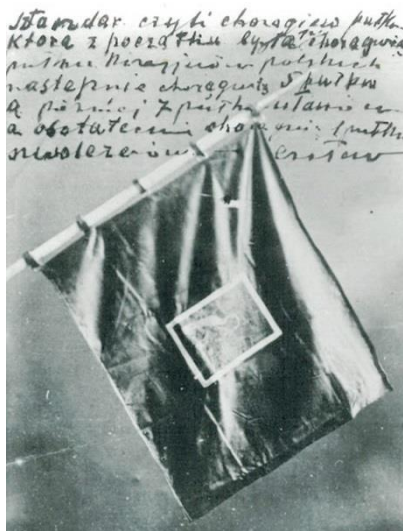 Sztandar czyli chorągiew pułku
która z początku była chorągwią
pułku Kirasjerów polskich
następnie chorągwią 5 pułku
a później 7 pułku ułanów
a ostatecznie chorągwią pułku
szwoleżerów